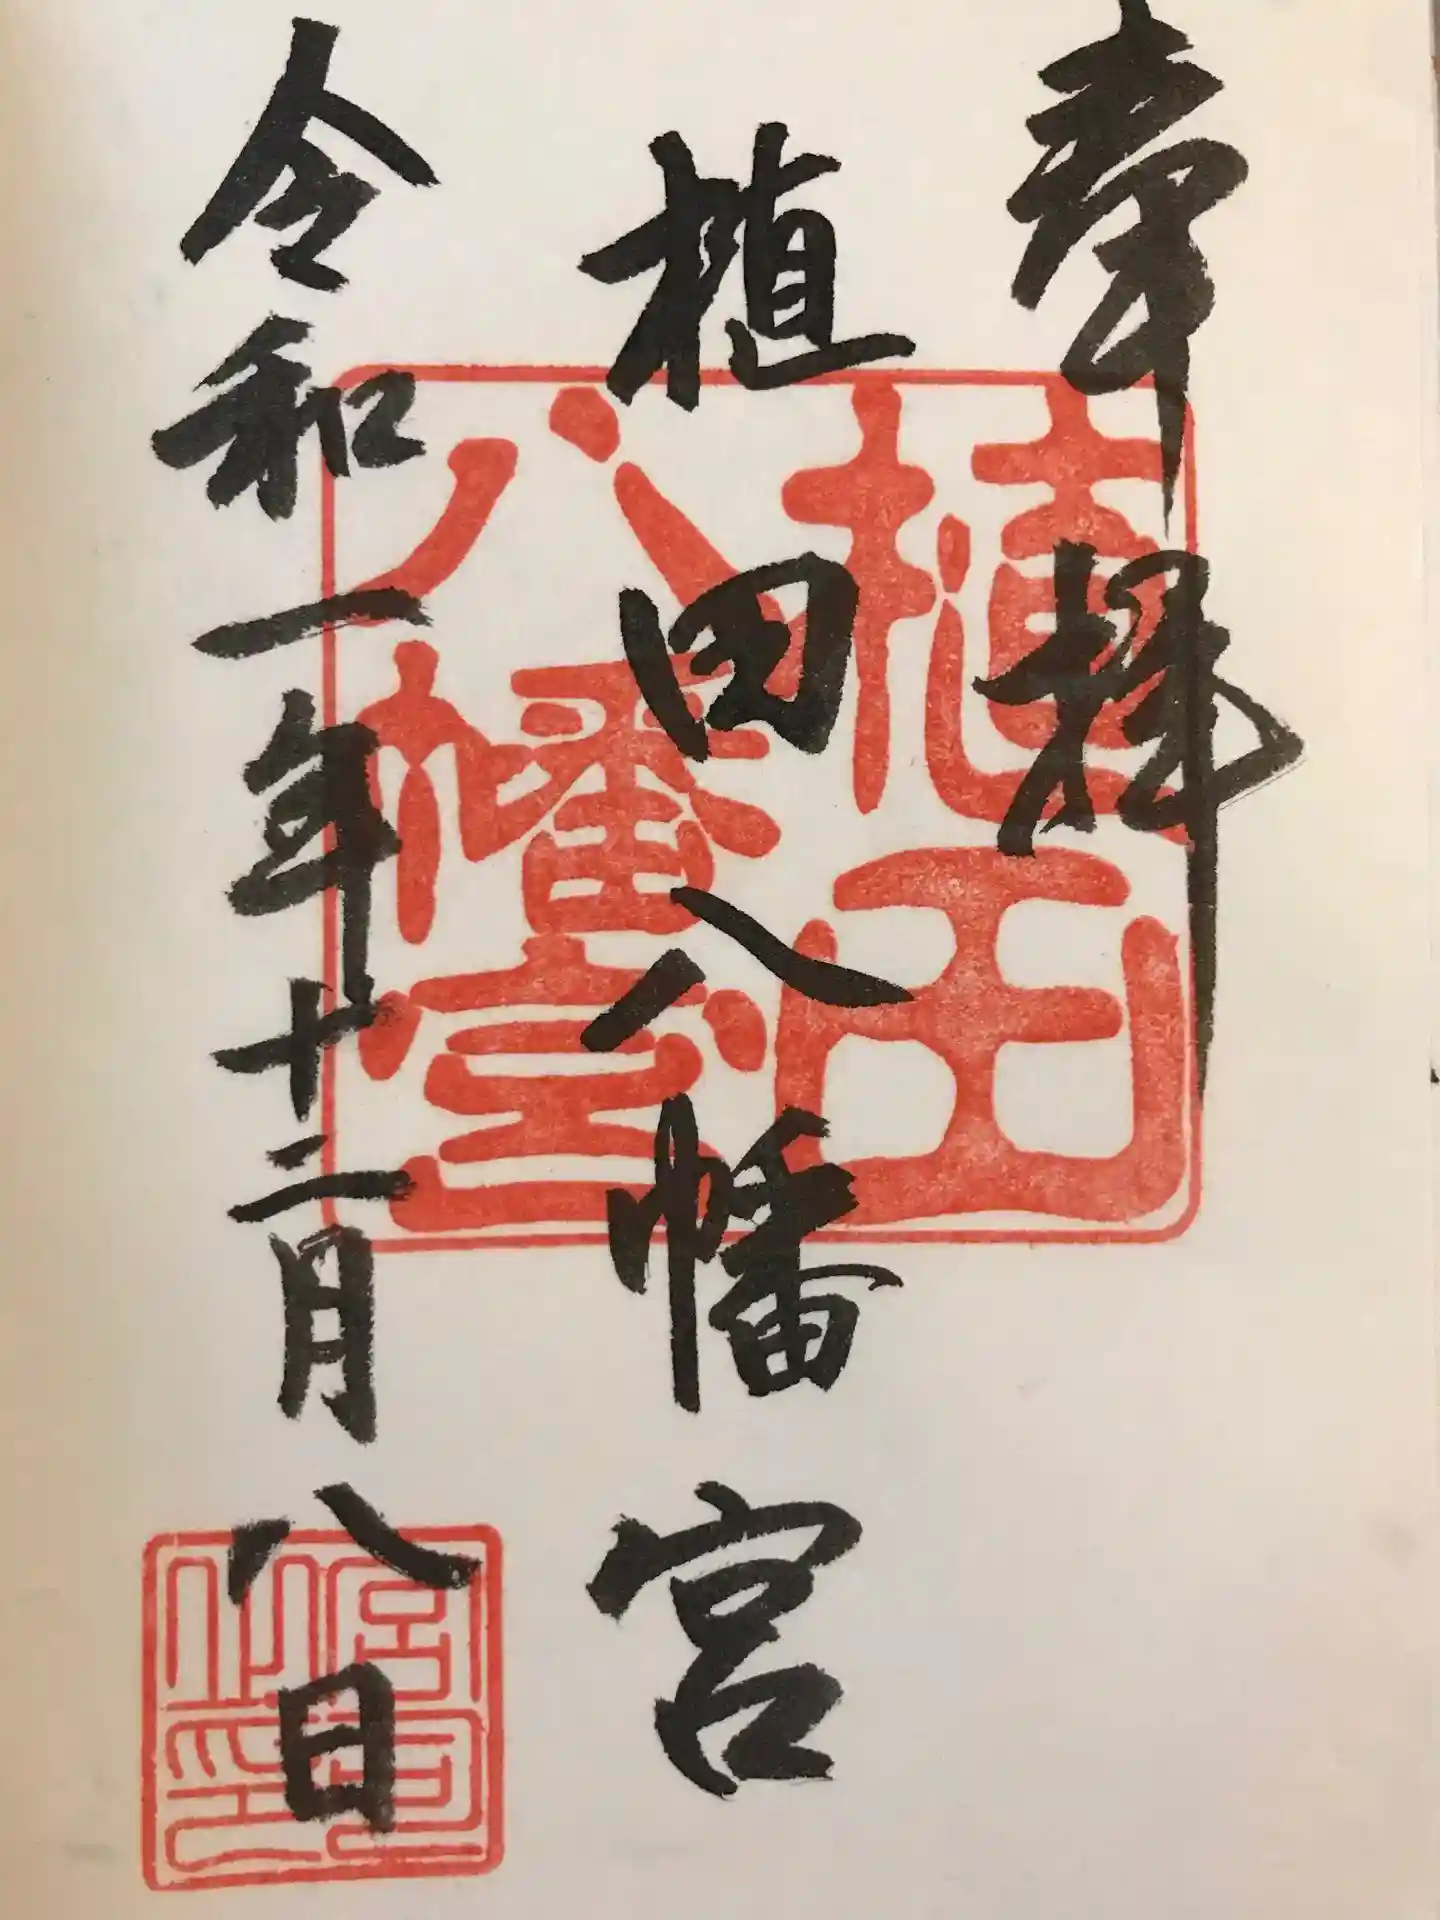 奉拝
植田八幡宮
令和一年十二月八日
植田
八幡宮
宮司
之印